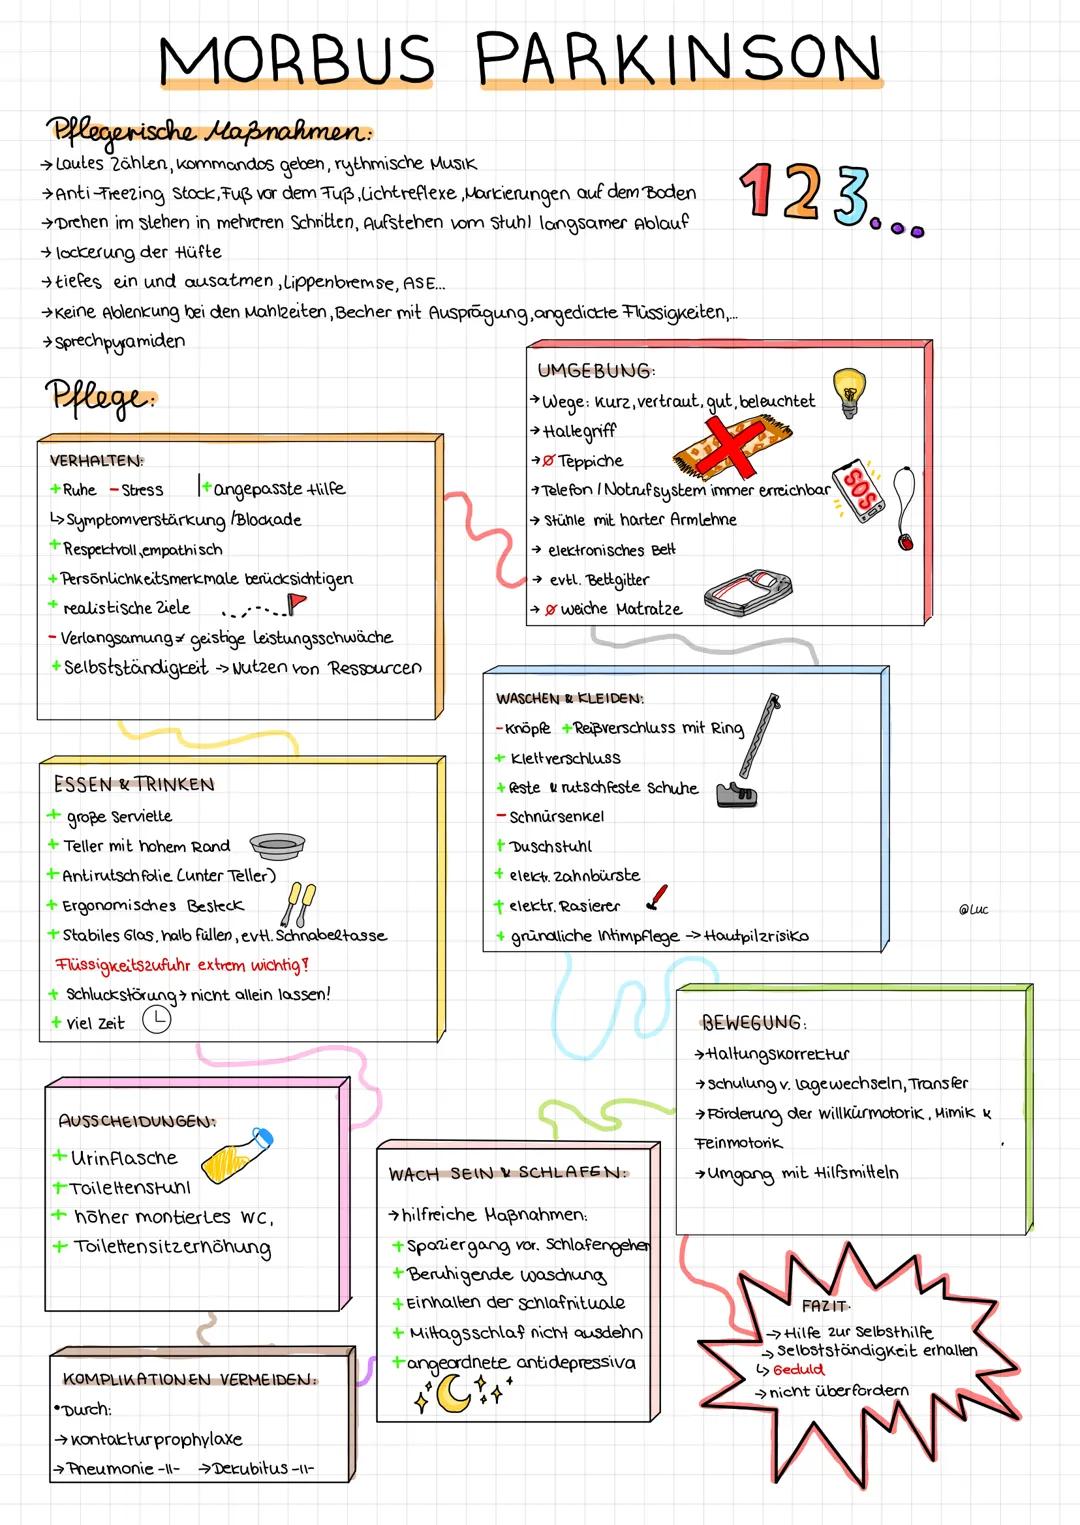 MORBUS PARKINSON
Pflegerische Maßnahmen:
→ Lautes Zählen, Kommandos geben, rythmische Musik
→ Anti-Freezing Stock, Fuß vor dem Fuß, Lichtreflexe, Markierungen auf dem Boden
→ Drehen im stehen in mehreren Schritten, Aufstehen vom Stuhl langsamer Ablauf
→ lockerung der Hüfte
→ tiefes ein und ausatmen, Lippenbremse, ASE...
→ Keine Ablenkung bei den Mahlzeiten, Becher mit Ausprägung, angedickte Flüssigkeiten,...
→ Sprechpyramiden
123...
Pflege:
VERHALTEN:
+ Ruhe - Stress | + angepasste Hilfe
↳ Symptomverstärkung / Blockade
+ Respektvoll, empathisch
+ Persönlichkeitsmerkmale berücksichtigen
+ realistische Ziele
- Verlangsamung ≠ geistige Leistungsschwäche
+ Selbstständigkeit → Nutzen von Ressourcen
UMGEBUNG:
→ Wege: kurz, vertraut, gut, beleuchtet
→ Haltegriff
→ Ø Teppiche
→ Telefon / Notrufsystem immer erreichbar
SOS
→ Stühle mit harter Armlehne
→ elektronisches Bett
→ evtl. Bettgitter
→ Ø weiche Matratze
WASCHEN & KLEIDEN:
- Knöpfe + Reißverschluss mit Ring
+ Klettverschluss
+ feste & rutschfeste Schuhe
- Schnürsenkel
+ Duschstuhl
+ elektr. Zahnbürste
+ elektr. Rasierer
+ gründliche Intimpflege → Hautpilzrisiko
@Luc
ESSEN & TRINKEN
+ große Serviette
+ Teller mit hohem Rand
+ Antirutschfolie (unter Teller)
+ Ergonomisches Besteck
+ Stabiles Glas, halb füllen, evtl. Schnabeltasse
Flüssigkeitszufuhr extrem wichtig!
+ Schluckstörung → nicht allein lassen!
+ viel Zeit
BEWEGUNG:
→ Haltungskorrektur
→ Schulung v. lagewechseln, Transfer
→ Förderung der Willkürmotorik, Mimik &
Feinmotorik
→ Umgang mit Hilfsmitteln
AUSSCHEIDUNGEN:
+ Urinflasche
+ Toilettenstuhl
+ höher montiertes WC,
+ Toilettensitzerhöhung
WACH SEIN & SCHLAFEN:
→ hilfreiche Maßnahmen:
+ Spaziergang vor. Schlafengehen
+ Beruhigende Waschung
+ Einhalten der Schlafrituale
+ Mittagsschlaf nicht ausdehn
+ angeordnete antidepressiva
KOMPLIKATIONEN VERMEIDEN:
• Durch:
→ Kontakturprophylaxe
→ Pneumonie -11- → Dekubitus -11-
FAZIT:
→ Hilfe zur Selbsthilfe
→ Selbstständigkeit erhalten
↳ Geduld
→ nicht überfordern